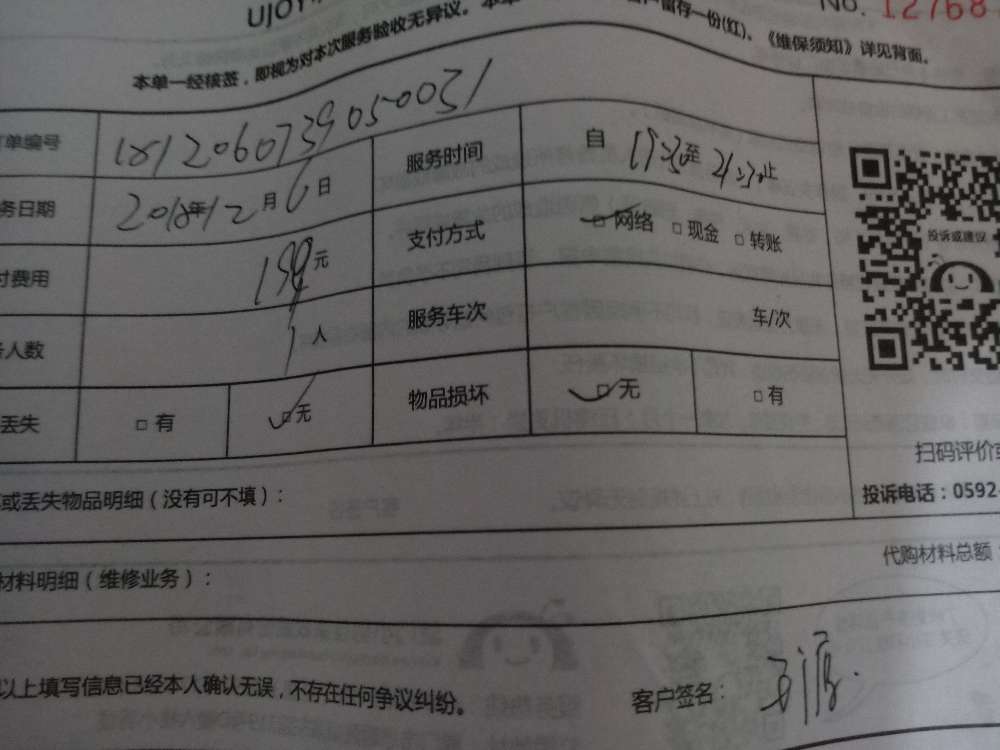 UJOY
No. 12768
本单一经核签，即视为对本次服务验收无异议。本单 留存一份(红)、《维保须知》详见背面。
单编号 1812060739050031 服务时间 自 19:30 至 21:30 止
务日期 2018年12月6日 支付方式 □ 网络 □ 现金 □ 转账
付费用 199元 服务车次 车/次
人数 1人
投诉或建议
丢失 □ 有 □ 无 物品损坏 □ 无 □ 有
扫码评价或
或丢失物品明细（没有可不填）：
投诉电话：0592-
材料明细（维修业务）：
代购材料总额：
以上填写信息已经本人确认无误，不存在任何争议纠纷。 客户签名：